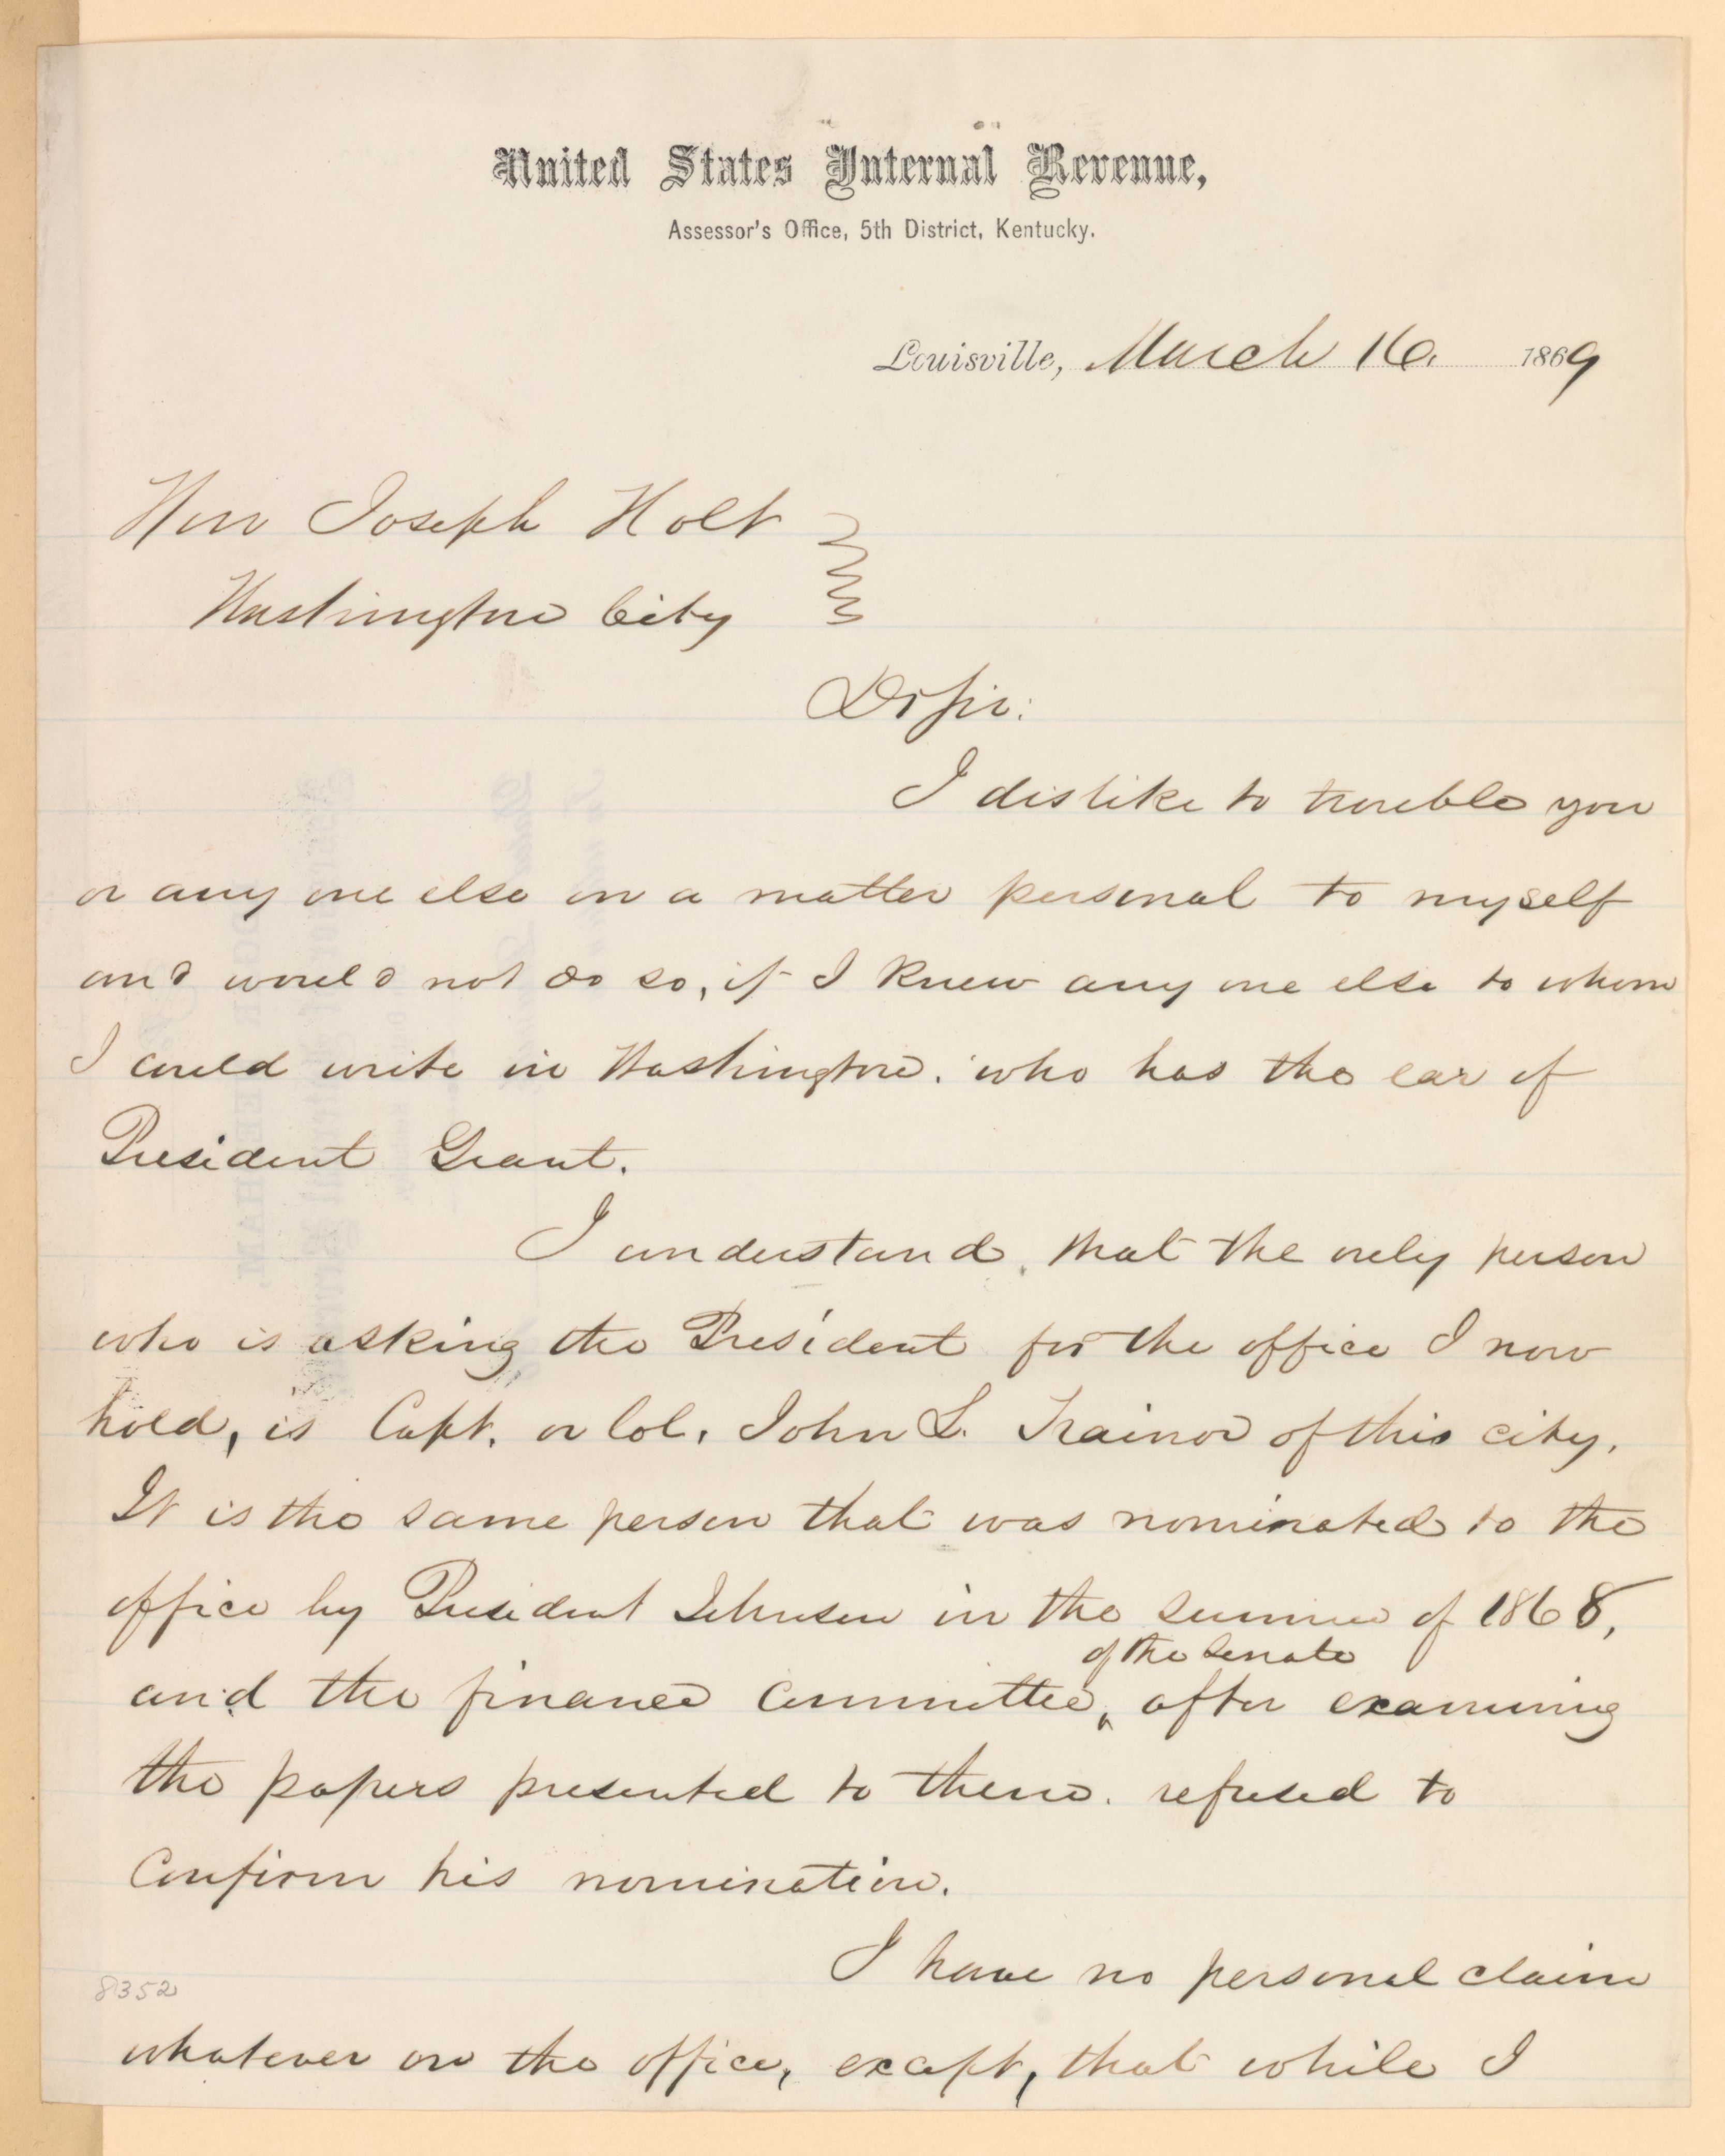 United States Internal Revenue,
Assessor's Office, 5th District, Kentucky.
Louisville, March 16. 1869
Hon Joseph Holt
Washington City
Dr Sir:
I dislike to trouble you
or any one else on a matter personal to myself
and would not do so, if I knew any one else to whom
I could write in Washington. who has the ear of
President Grant.
I understand, that the only person
who is asking the President for the office I now
hold, is Capt. or Col. John L. Trainor of this city.
It is the same person that was nominated to the
office by President Johnson in the summer of 1868,
of the Senate
and the finance Committee, after examining
the papers presented to them. refused to
Confirm his nomination.
I have no personal claim
8352
whatever on the office, except, that while I